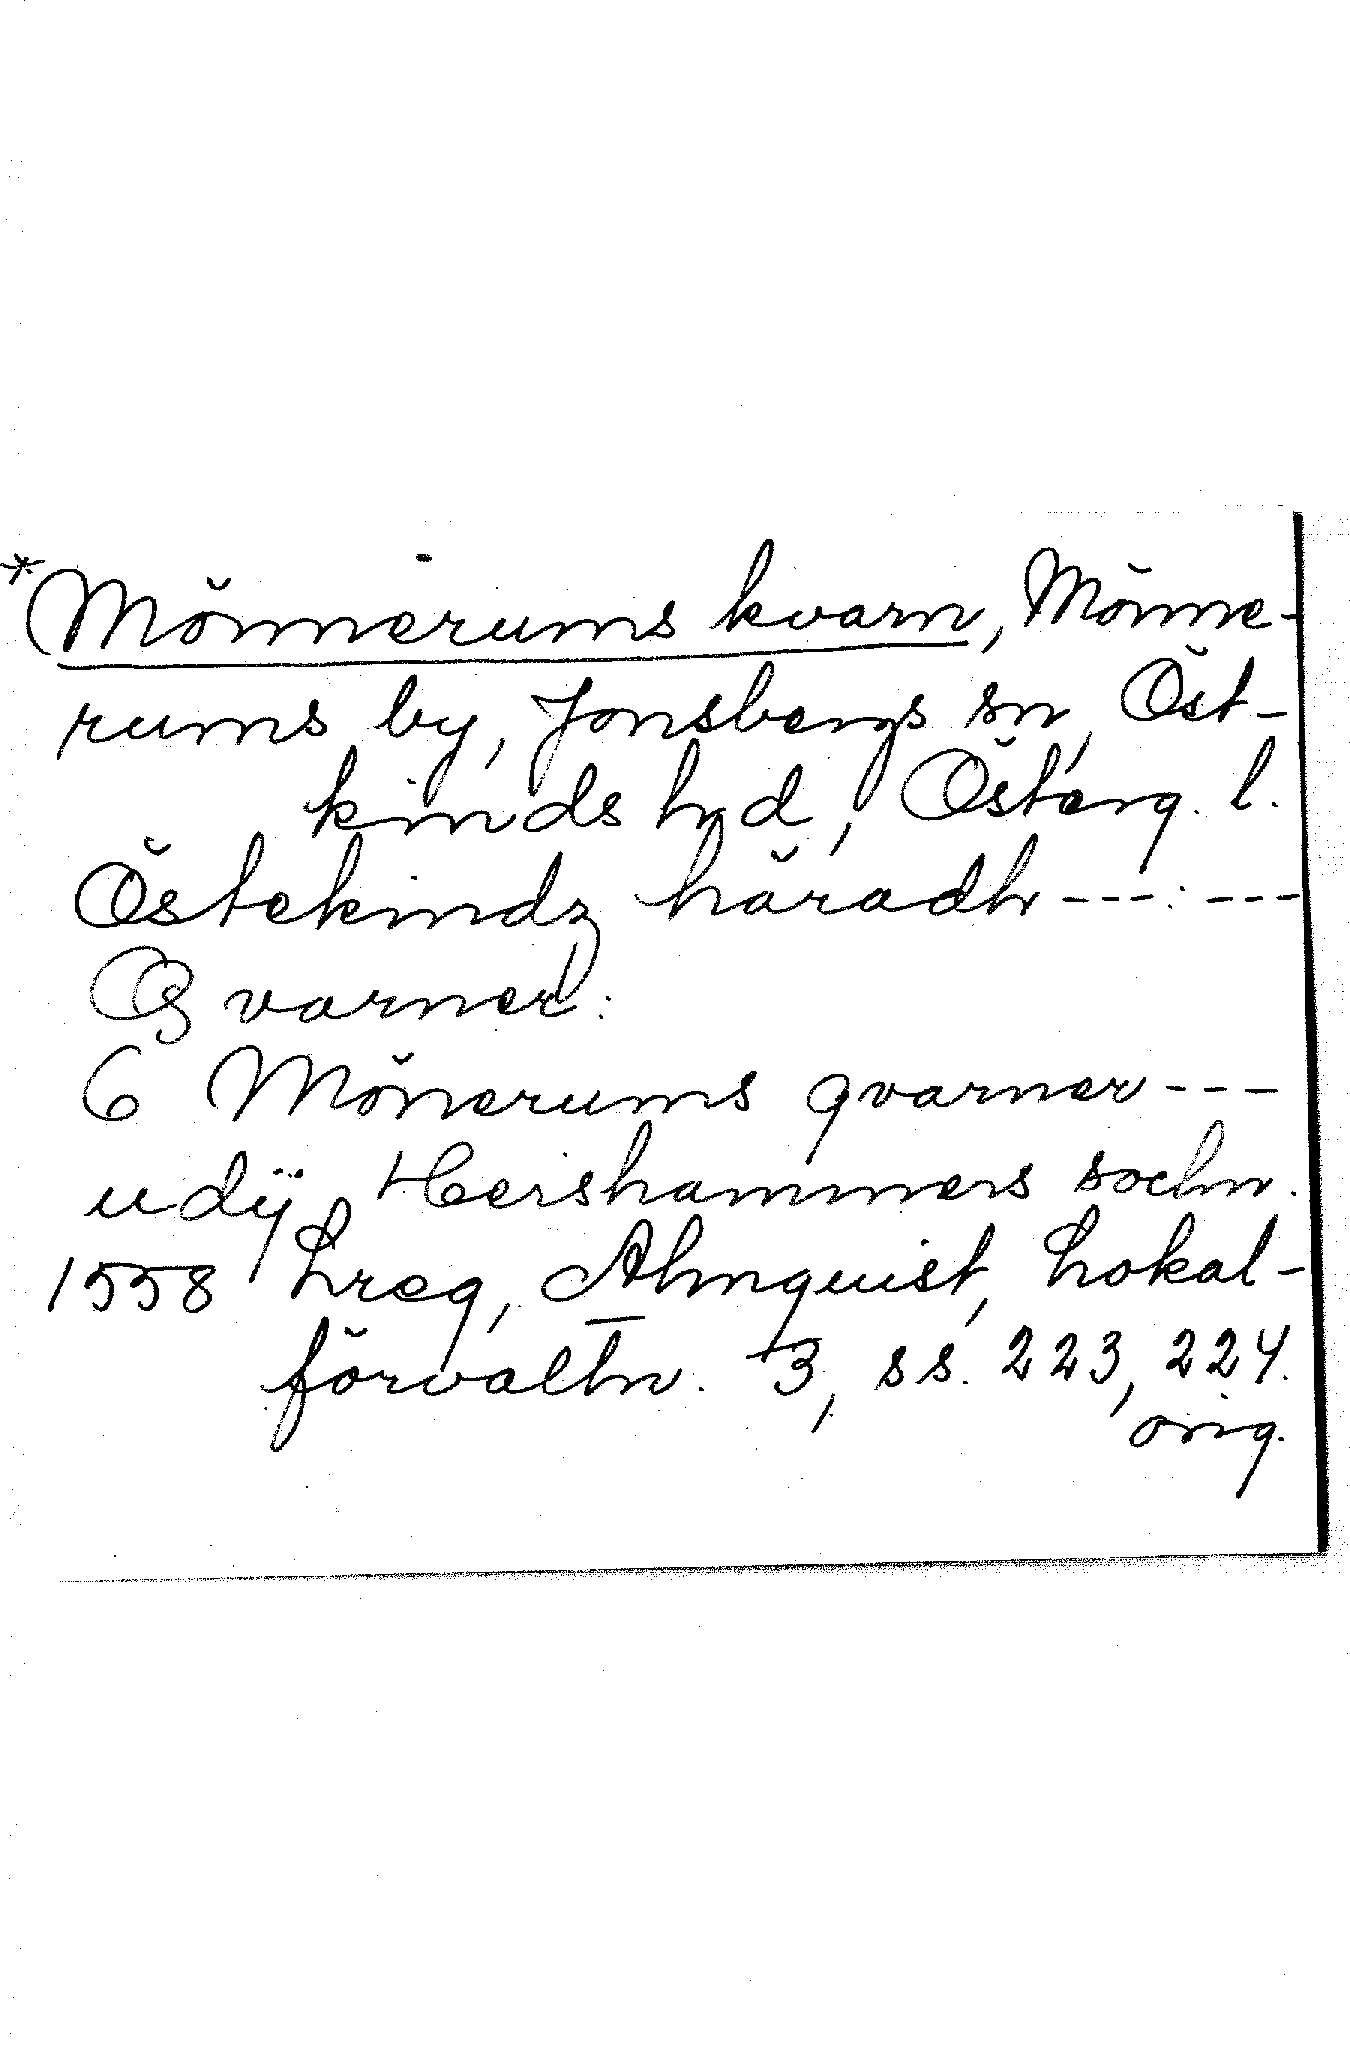 *Mönnerums kvarn, Mönne-
rums by, Jonsbergs sn, Öst-
kinds hd, Österg. l.
Östekindz häradh ---:---
Qvarner:
6 Mönerums qvarner ---
udÿ Hershammers sochn.
1558 Lreg, Almquist, Lokal-
förvaltn. 3, ss. 223, 224.
orig.